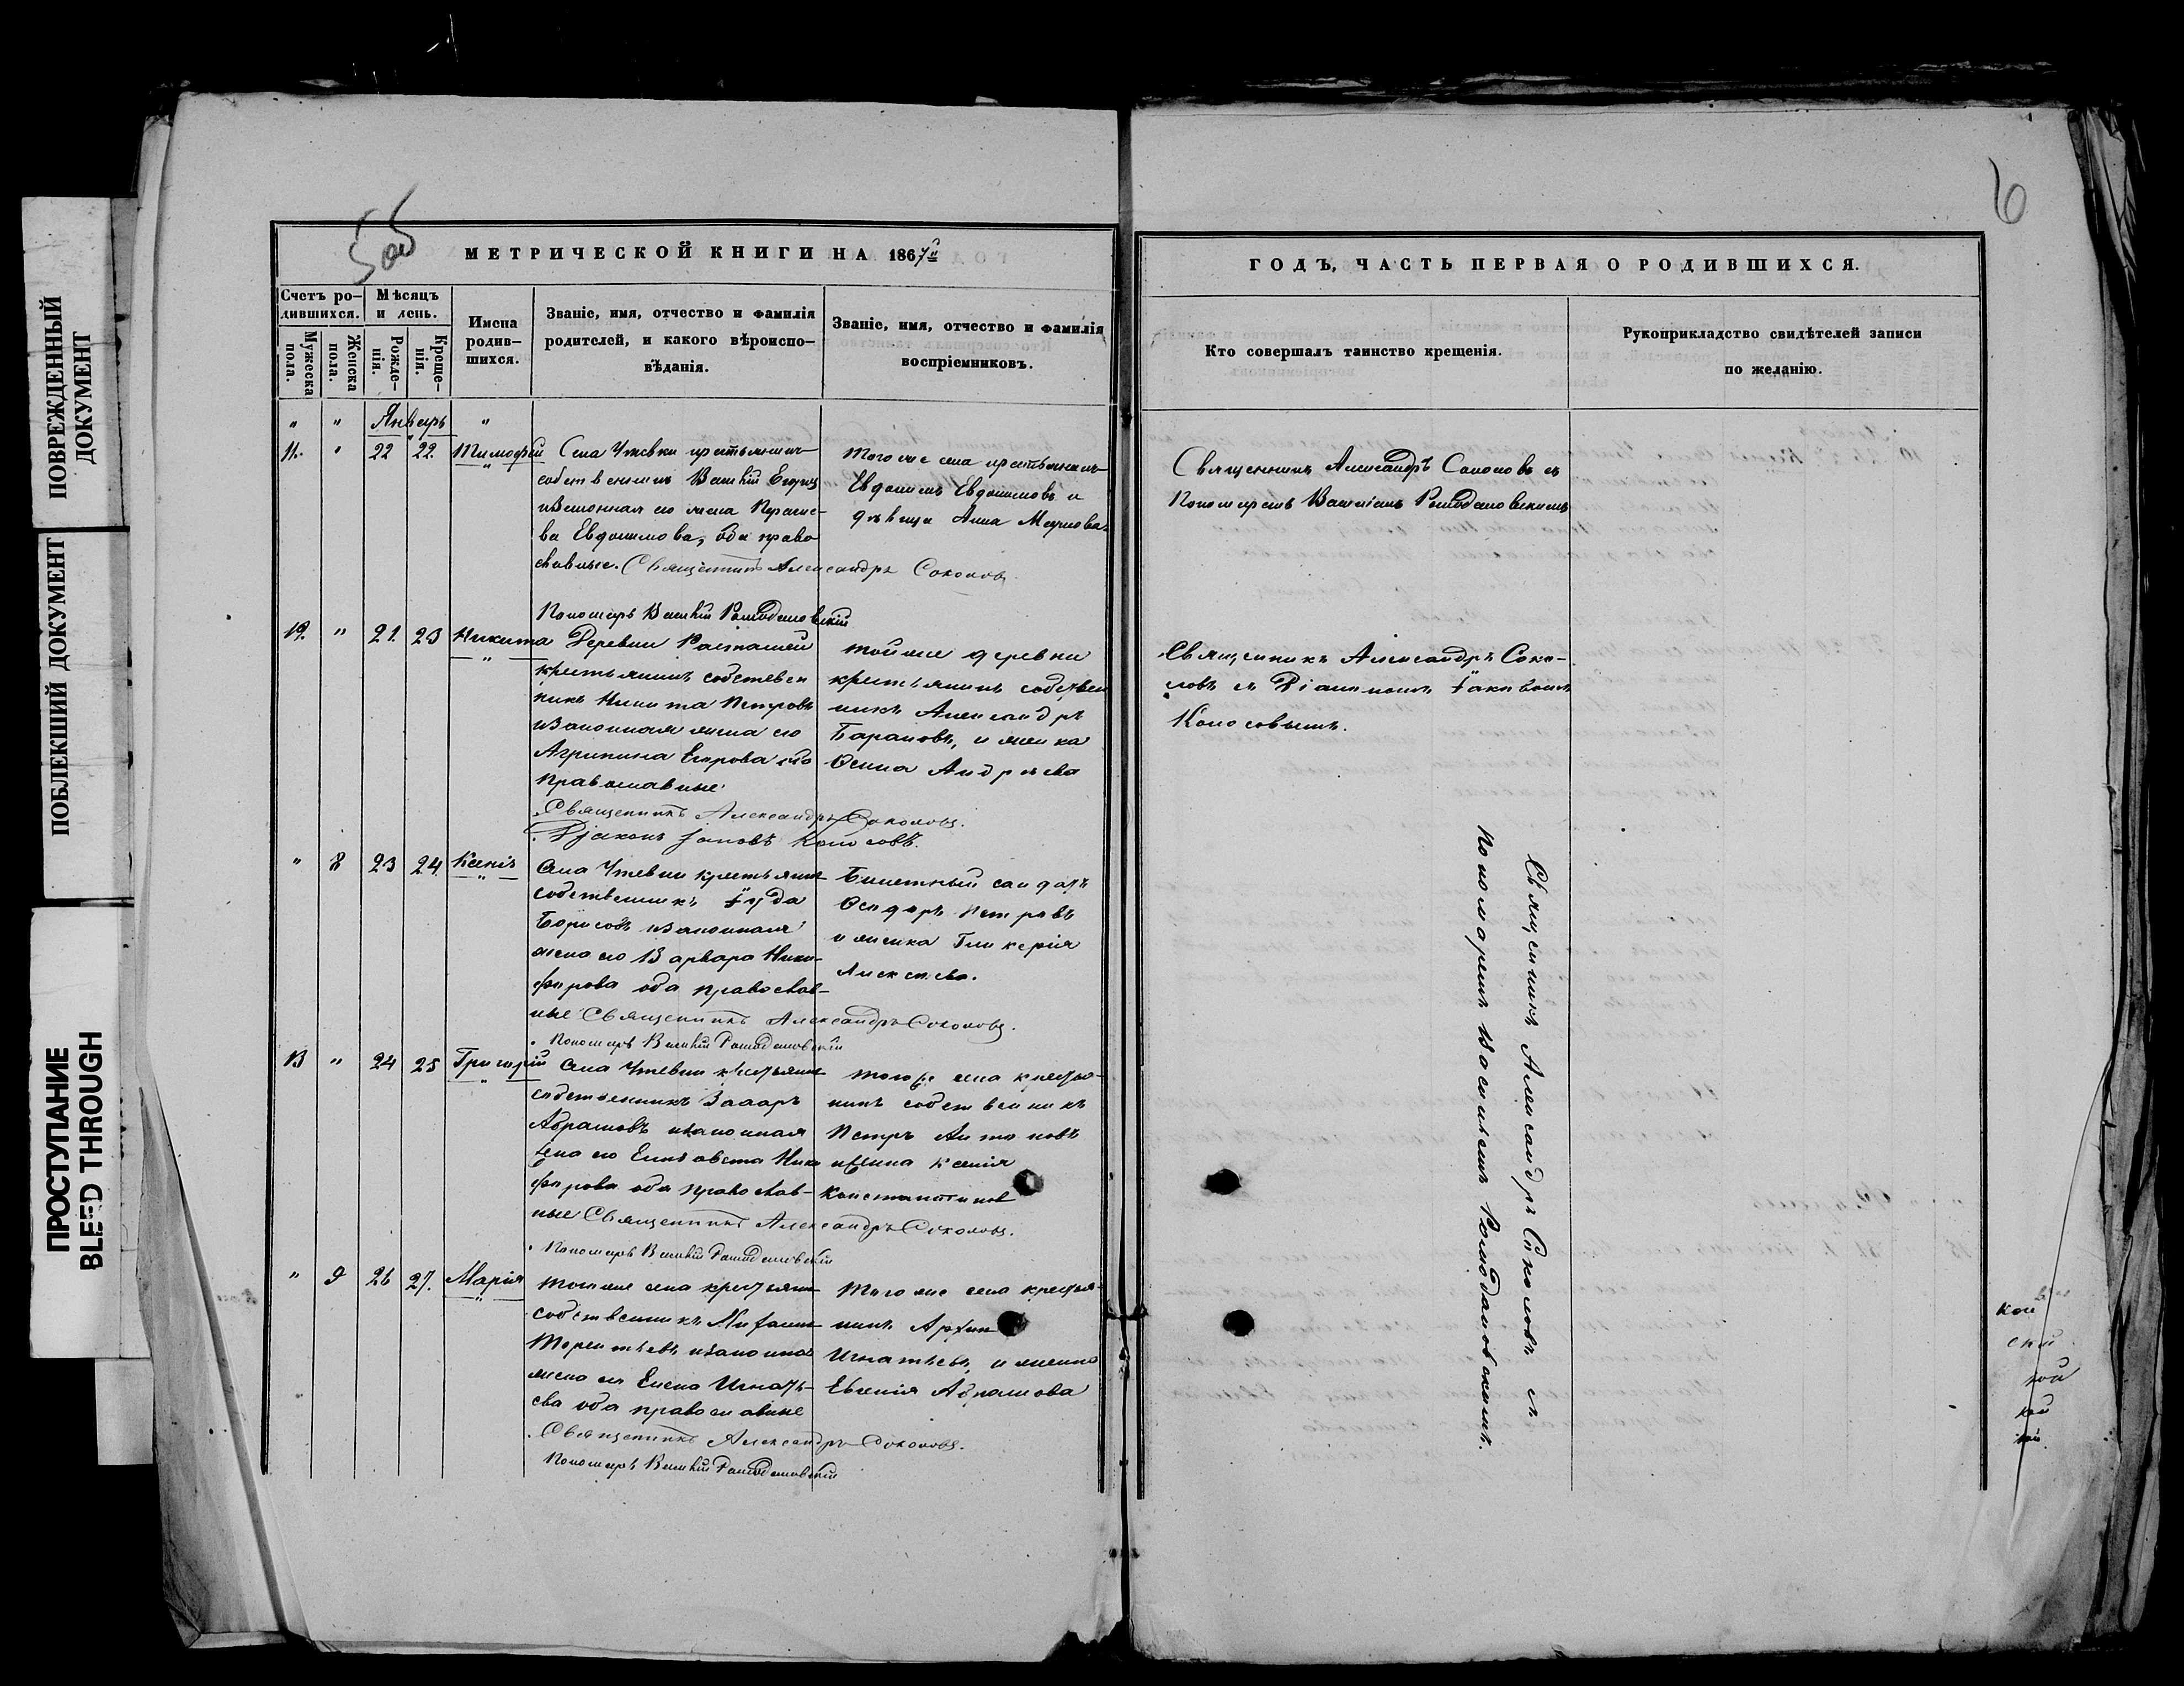 ПОВРЕЖДЕННЫЙ
ДОКУМЕНТ
ПОБЛЕКШИЙ ДОКУМЕНТ
ПРОСТУПАНИЕ
BLEED THROUGH
5об
МЕТРИЧЕСКОЙ КНИГИ НА 1867й
Счетъ ро-
дившихся.
Мужеска
пола.
Женска
пола.
Мѣсяцъ
и день.
Рожде-
нія.
Креще-
нія.
Имена
родив-
шихся.
Званіе, имя, отчество и фамилія
родителей, и какого вѣроиспо-
вѣданія.
Званіе, имя, отчество и фамилія
воспріемниковъ.
" " Январь "
11. " 22 22. Тимофей
Села Утевки крестьянинъ
собственникъ Василій Егоровъ
изаконная его жена Праскe-
ва Евдокимова, оба право
славные. Священникъ Александръ Соколовъ
Пономарь Василій Ромодановскій
Того же села крестьянинъ
Евдокимъ Евдокимовъ и
дѣвица Анна Маркова.
12. " 21. 23 Никита
Деревни
крестьянинъ собствен
никъ Никита Петровъ
изаконная жена его
Агрипина Егорова оба
православные
Священникъ Александръ Соколовъ.
Діаконъ Іаковъ Колосовъ.
Той же деревни
крестьянинъ собствен
никъ Александръ
Барановъ, и женка
Ѳекла Андреева
" 8 23 24. Ксенія
Села Утевки крестьянин
собственникъ Іуда
Борисовъ изаконная
жена его Варвара Ники-
форова оба православ-
ные Священникъ Александръ Соколовъ.
Пономарь Василій Ромодановскій
Билетный солдатъ
Ѳедоръ Петровъ
и женка Гликерія
Алексѣева.
13 " 24 25 Григорій
Села Утевки крестьянин
собственникъ Захаръ
Абрамовъ изаконная
жена его Елизавета Ники
форова оба православ-
ные Священникъ Александръ Соколовъ.
Пономарь Василій Ромодановскій
того же села крестья-
нинъ собственникъ
Петръ Антоновъ
и жена Ксенія
Константинов
" 9 26 27. Марія
Того же села крестьянин
собственникъ
Терентьевъ изаконная
жена его Елена Игнать-
ева оба православные
Священникъ Александръ Соколовъ.
Пономарь Василій Ромодановскій
Того же села крестья-
нинъ Архип
Игнатьевъ, и женка
Евгенія Абрамова
6
ГОДЪ, ЧАСТЬ ПЕРВАЯ О РОДИВШИХСЯ.
Кто совершалъ таинство крещенія.
Рукоприкладство свидѣтелей записи
по желанію.
Священникъ Александръ Соколовъ съ
Пономаремъ Василіемъ Ромодановскимъ
Священникъ Александръ Соко-
ловъ съ Діакономъ Іаковомъ
Колосовымъ.
Священникъ Александръ Соколовъ съ
пономаремъ Василіемъ Ромодановскимъ.